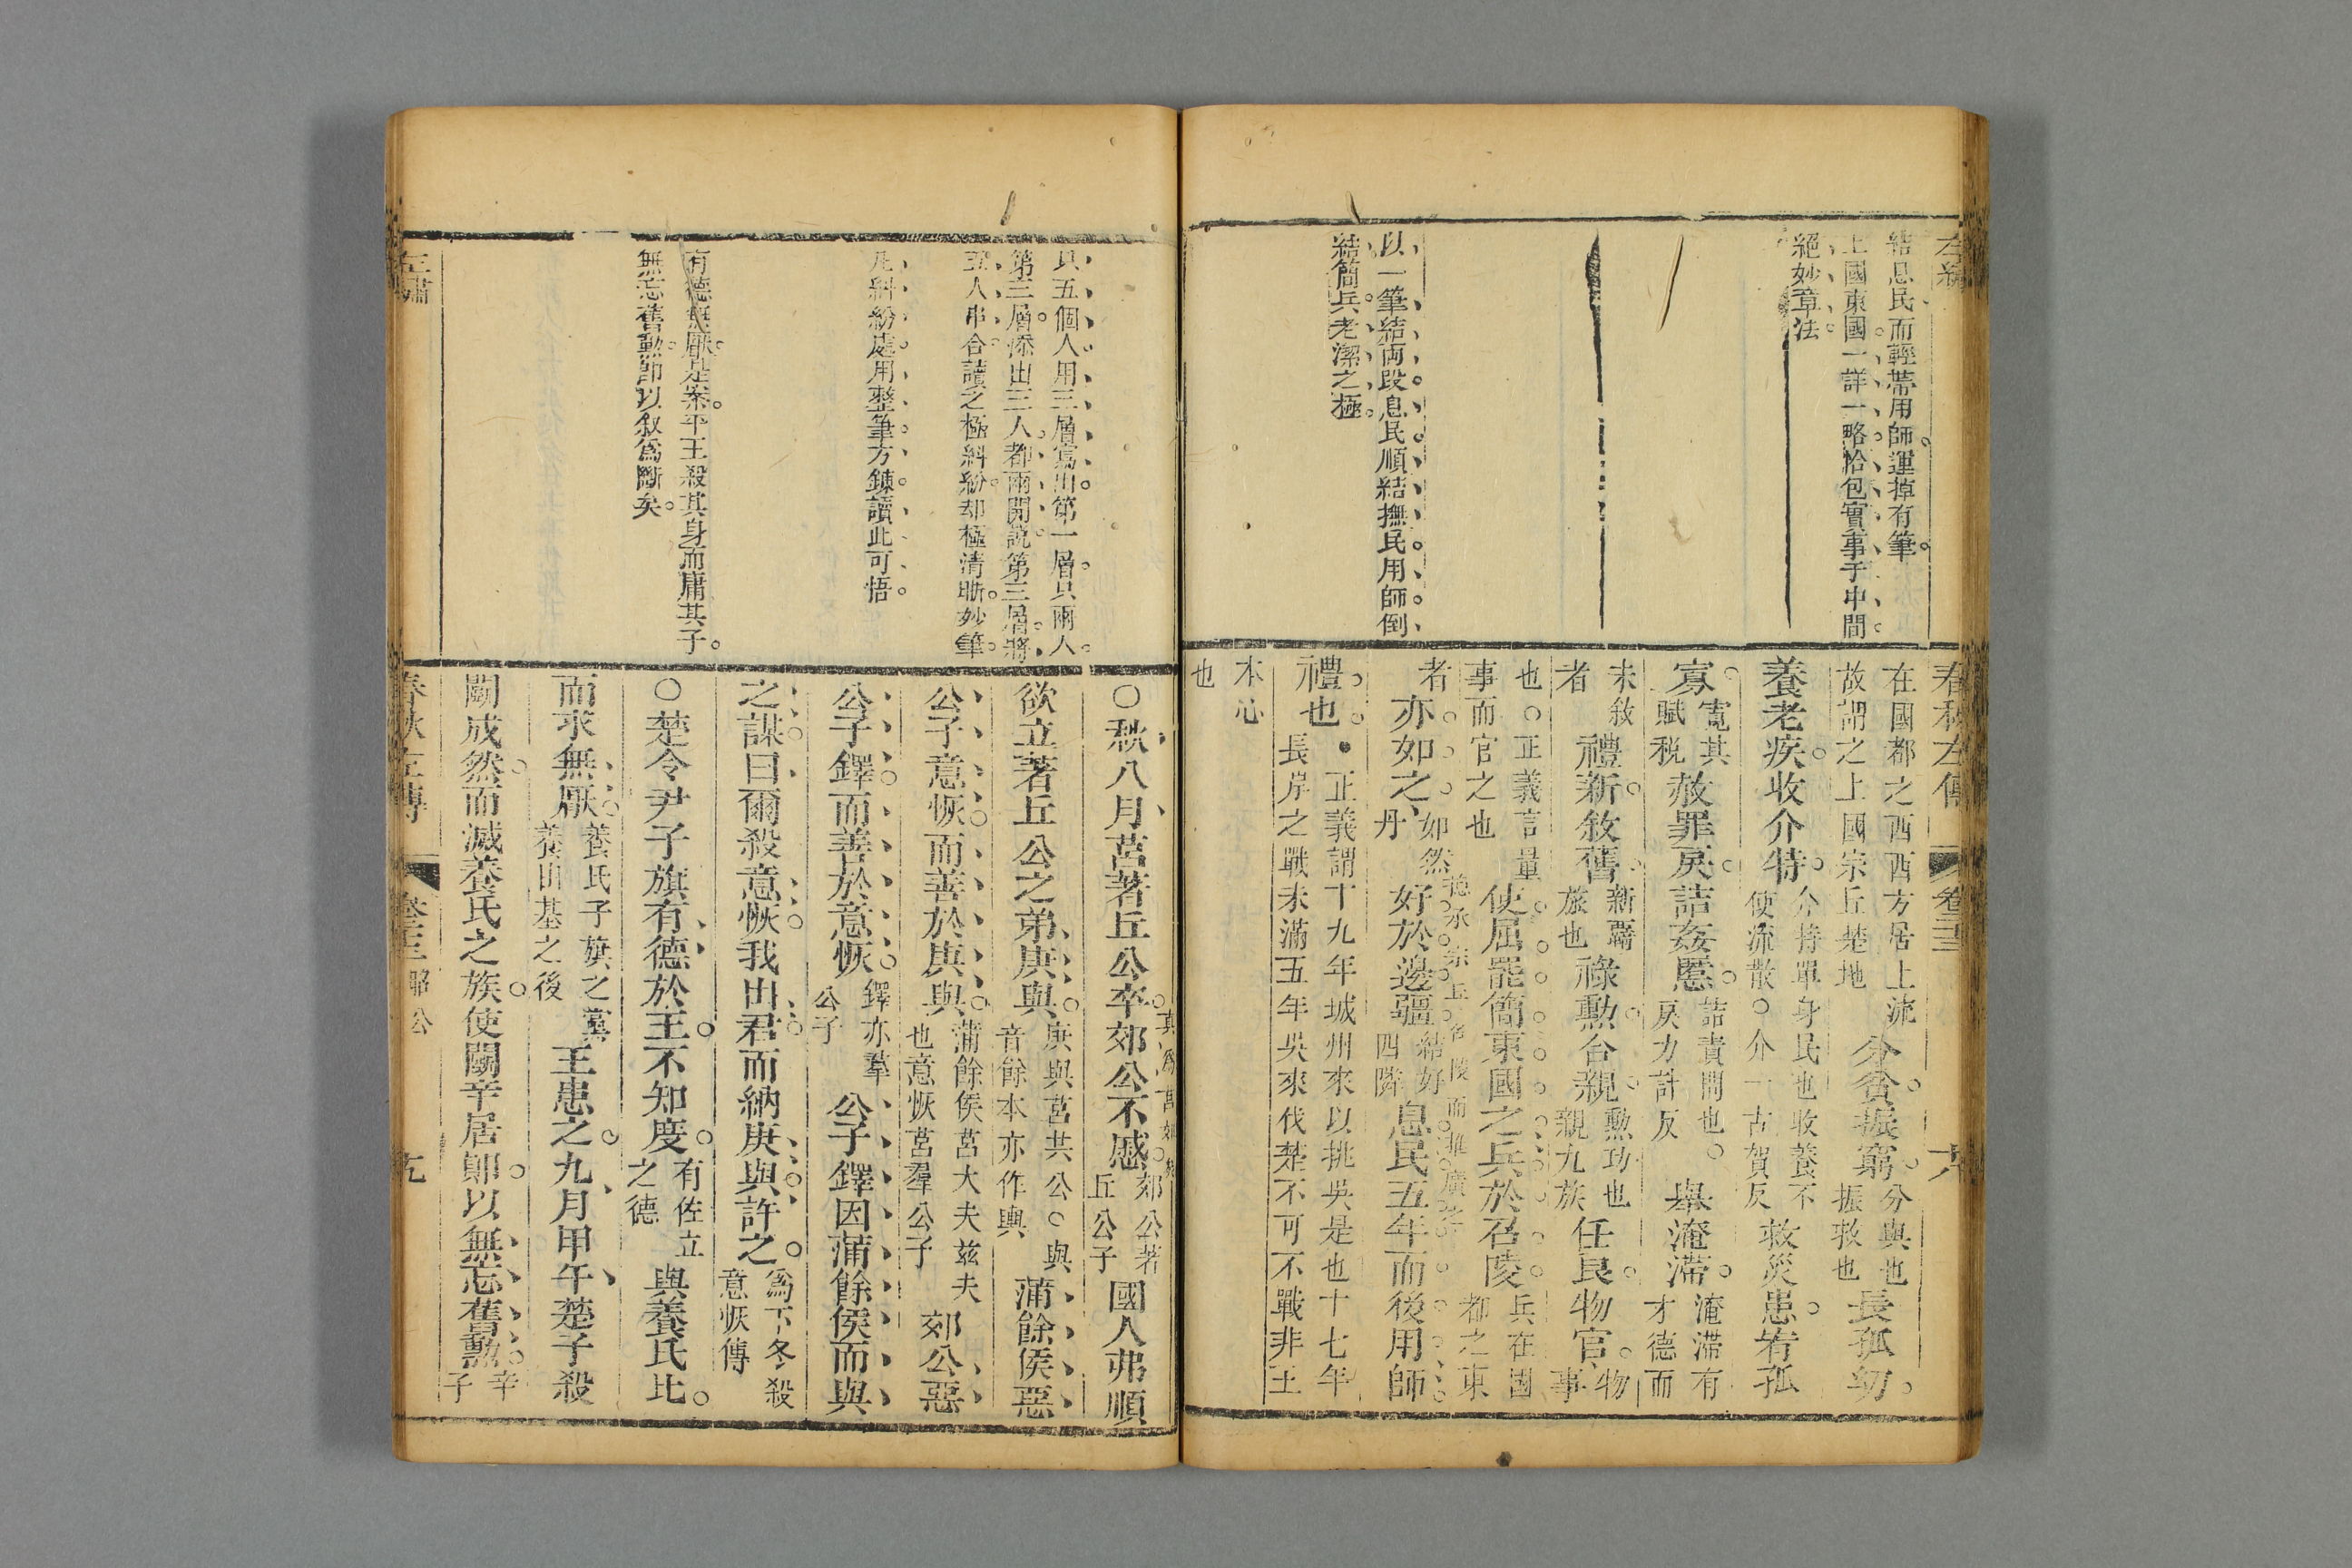 結息民而輕帶用師運掉有筆
上國東國一詳一略恰包實事于中間
絕妙章法
以一筆結兩段息民順結撫民用師倒
結簡兵老潔之極
春秋左傳 卷三三
在國都之西西方居上流
故謂之上國宗丘楚地
分貧振窮
分與也
振救也
長孤幼
養老疾收介特
介特單身民也收養不
使流散○介一古賀反
救災患宥孤
寡
寬其
賦稅
赦罪戾詰姦慝
詰責問也○
戾力計反
舉淹滯
淹滯有
才德而
未敘
者
禮新敘舊
新羈
旅也
祿勳合親
勳功也
親九族
任良物官
物
事
也○正義言量
事而官之也
使屈罷簡東國之兵於召陵
兵在國
都之東
者
亦如之
如然
丹
好於邊疆
結好
四隣
息民五年而後用師
禮也
●正義謂十九年城州來以挑吳是也十七年
長岸之戰未滿五年吳來伐楚不可不戰非王
本心
也
只五個人用三層寫出第一層只兩人
第二層添出三人都兩開說第三層將
五人串合讀之極糾紛却極清晰妙筆
凡糾紛處用整筆方鍊讀此可悟
有德無厭是案平王殺其身而庸其子
無忘舊勳卽以敘爲斷矣
○秋八月莒著丘公卒郊公不慼
郊公著
丘公子
國人弗順
欲立著丘公之弟庚與
庚與莒共公○與
音餘本亦作輿
蒲餘侯惡
公子意恢而善於庚與
蒲餘侯莒大夫兹夫
也意恢莒羣公子
郊公惡
公子鐸而善於意恢
鐸亦羣
公子
公子鐸因蒲餘侯而與
之謀曰爾殺意恢我出君而納庚與許之
爲下冬殺
意恢傳
○楚令尹子旗有德於王不知度
有佐立
之德
與養氏比
而求無厭
養氏子旗之黨
養由基之後
王患之九月甲午楚子殺
鬬成然而滅養氏之族使鬬辛居鄖以無忘舊勳
辛
子
春秋左傳 卷三三 昭公 九